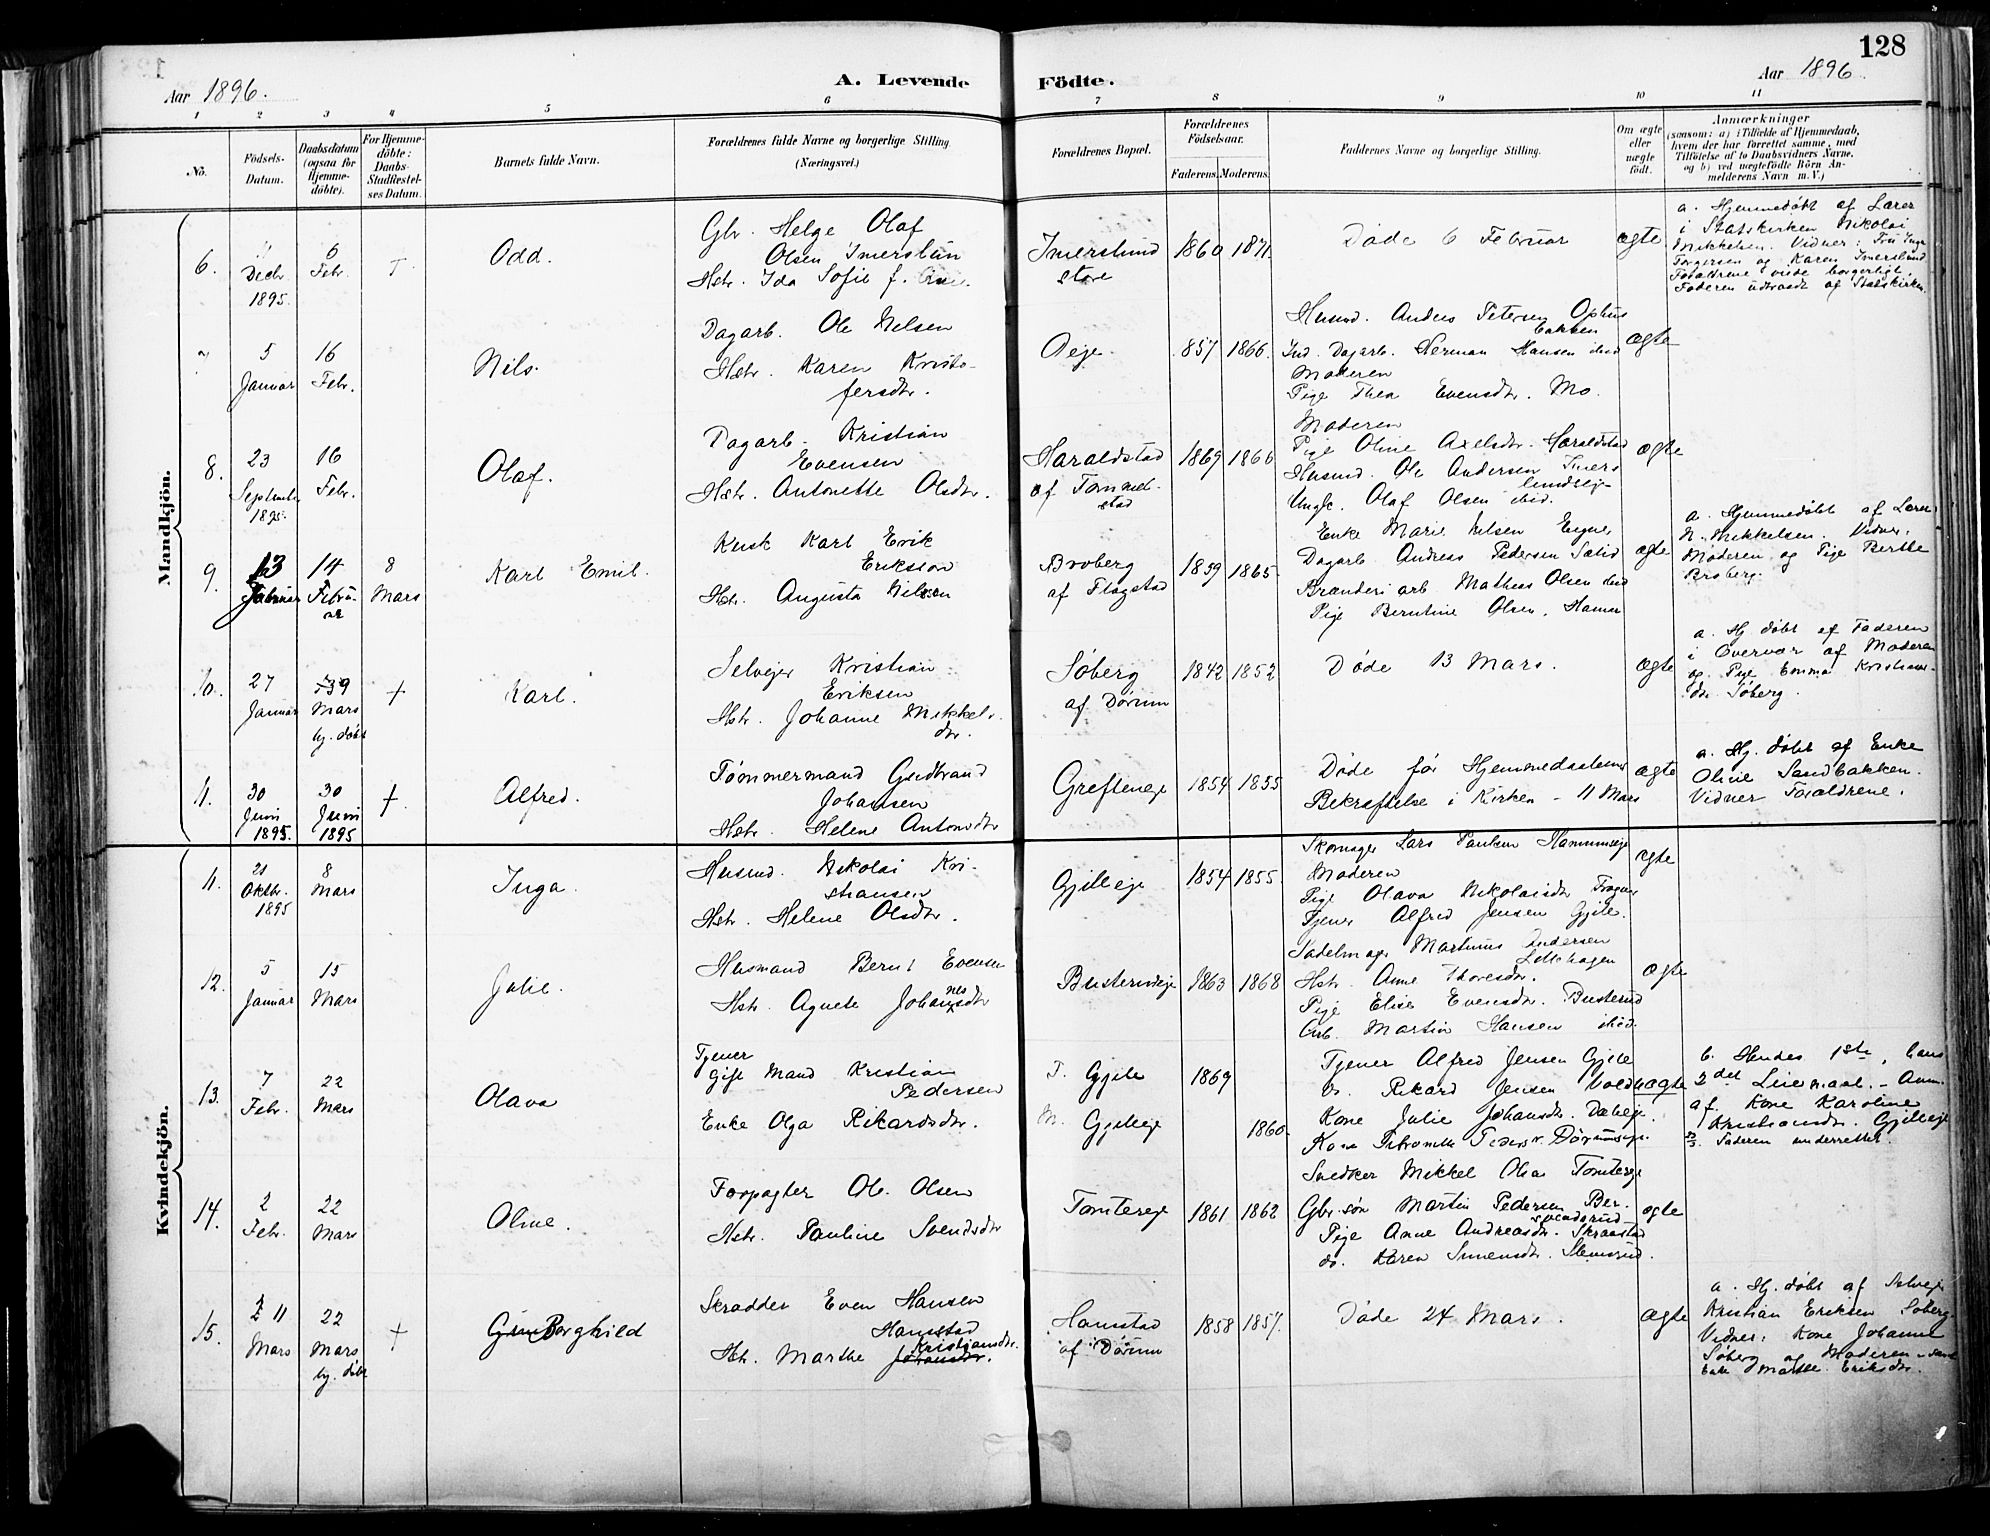 128
Aar 1896.
A. Levende Födte.
Aar 1896
1 2 3 4 5 6 7 8 9 10 11
No.
Födsels-
Datum.
Daabsdatum
(ogsaa för
Hjemme-
döbte).
For Hjemme-
döbte:
Daabs-
Stadfæstel-
ses Datum.
Barnets fulde Navn.
Forældrenes fulde Navne og borgerlige Stilling
(Næringsvei.)
Forældrenes Bopæl.
Forældrenes
Födselsaar.
Faderens. Moderens.
Faddernes Navne og borgerlige Stilling.
Om ægte
eller
uægte
födt.
Anmærkninger
(saasom: a) i Tilfælde af Hjemmedaab,
hvem der har forrettet samme, med
Tilföielse af to Daabsvidners Navne,
og b) ved uægtefödte Börn An-
melderens Navn m. V.)
Mandkjön.
6.
Decbr.
1895.
6
Febr.
Odd.
Gbr. Helge Olaf
Olsen Imerslun
Hstr. Ida Sofie f.
Imerslund
store
1860 1871.
Døde 6 Februar
ægte
a. Hjemmedøbt af Lærer
i Statskirken Nikolai
Mikkelsen. Vidner: Fru Inga
Torgersen og Karen Imerslund
Forældrene viede borgerligt.
Faderen udtraadt af Statskirken.
7
5
Januar
16
Febr.
Nils.
Dagarb. Ole Nilsen
Hstr. Karen Kristo-
fersdtr.
Oeje.
857 1866.
Husmd. Anders Petersen Ophus
bakken
Ind. Dagarb. Herman Hansen ibid
Moderen
Pige Thea Evensdtr. Mo.
ægte
8.
23
Septembr.
1895.
16
Febr.
Olaf.
Dagarb. Kristian
Evensen
Hstr. Antonette Olsdtr.
Haraldstad
af Tommel-
stad
1869 1866
Moderen
Pige Oline Axelsdtr. Haraldstad
Husmd. Ole Andersen Imers
lundseje
Ungk. Olaf Olsen ibid.
ægte
9.
13
Februar
14
Febru-
ar
8
Mars
Karl Emil.
Kusk Karl Erik
Eriksson
Hstr. Augusta Nilsen
Broberg
af Flagstad
1859 1865.
Enke Marie Nilsen
Dagarb. Andreas Pedersen
Brænderiarb. Mathias Olsen ibid
Pige Berntine Olsen, Hamar
ægte
a. Hjemmedøbt af Lærer
N. Mikkelsen. Vidner.
Moderen og Pige Berthe
Broberg.
10.
27
Januar
Mars
hj. døbt
+
Karl.
Selvejer Kristian
Eriksen
Hstr. Johanne Mikkels
dtr.
Søberg
af Dørum
1842 1852
Døde 13 Mars.
ægte
a. Hj. døbt af Faderen
i Overvær af Moderen
og Pige Emma Kristians-
dtr Søberg.
11.
30
Juni
1895.
30
Juni
1895
+
Alfred.
Tømmermand Gudbrand
Johansen
Hstr. Helene Antonsdtr
Grefteneje
1854 1855
Døde før Hjemmedaabens
Bekræftelse i Kirken - 11 Mars
ægte
a. Hj. døbt af Enke
Oline Sandbakken.
Vidner Forældrene.
Kvindekjön.
11.
21
Oktbr.
1895
8
Mars
Inga.
Husmd. Nikolai Kri-
stiansen
Hstr. Helene Olsdtr.
Gjilleje
1854 1855.
Skomager Lars Paulsen
Moderen
Pige Olava Nikolaisdtr
Tjener Alfred Jensen Gjile.
ægte
12.
5
Januar
15
Mars
Julie.
Husmand Bernt Evensen
Hstr. Agnete Johannesdtr
Busterudeje
1863 1868
Sadelmager Martinus Andersen
Lillehagen
Hstr. Anne Thoresdtr.
Pige Elise Evensdtr. Busterud
Arb. Martin Hansen ibid.
ægte
13.
7
Febr.
22
Mars
Olava
Tjener
Gift Mand Kristian
Pedersen
Enke Olga Rikardsdtr.
F. Gjile
M. Gjilleje
1869
1860.
Tjener Alfred Jensen Gjile
Do. Rikard Jensen Vold
Kone Julie Johansdtr.
Kone
uægte
b. Hendes 1ste, hans
2det Leiermaal. - Anm.
af. Kone Karoline
Kristiansdtr. Gjilleeje
Faderen underrettet.
14.
2
Febr.
22
Mars
Oline.
Forpagter Ole Olsen
Hstr. Pauline Svendsdtr
Tomtereje
1861 1862
Snedker Mikkel Olsen Tomtereje
Gbr.søn Martin Pedersen Ber-
svendsrud
Pige Anne Andreasdtr. Skraastad
do. Karen Simensdtr. Slemsrud.
ægte
15.
11
Mars
22
Mars
hj. døbt
+
Borghild
Skrædder Even Hansen
Hamstad
Hstr. Marthe Kristiansdtr.
Johansdtr.
Hamstad
af Dørum
1858 1857.
Døde 24 Mars.
ægte
a. Hj. døbt af Selvejer
Kristian Eriksen Søberg.
Vidner: Kone Johanne
Søberg og Moderen
Marthe Eriksdtr.